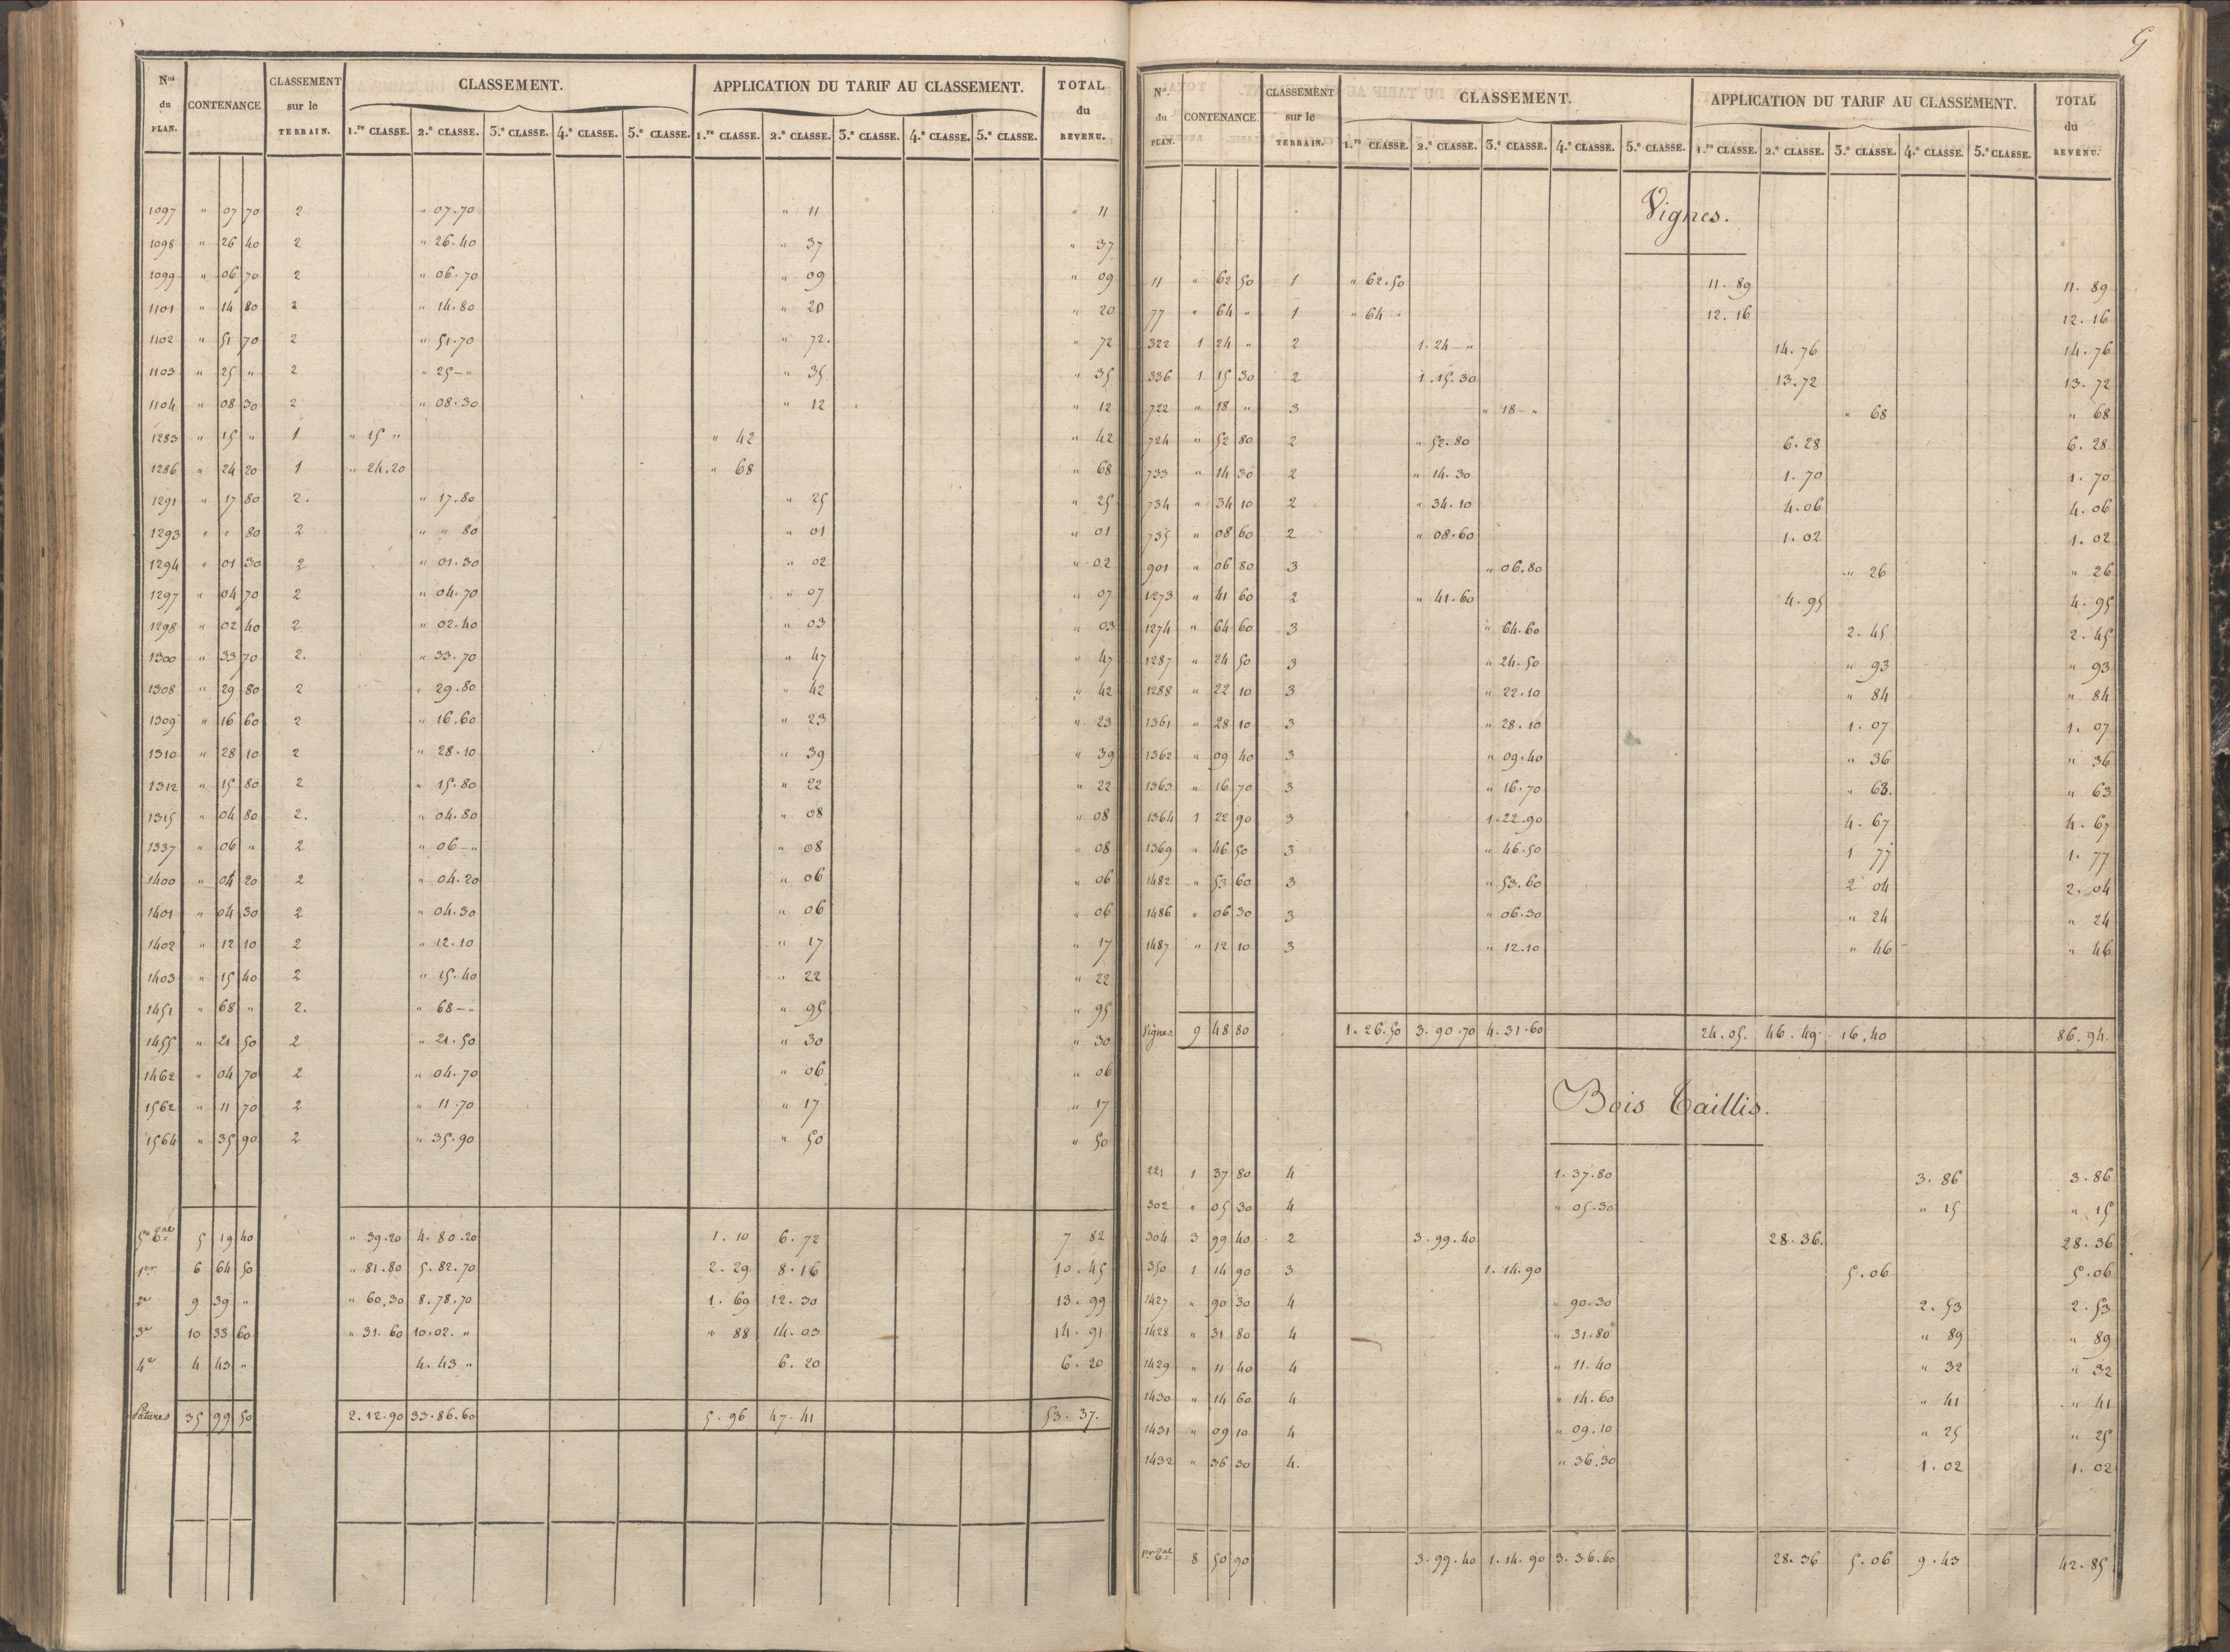 Nos du PLAN. CONTENANCE CLASSEMENT sur le TERRAIN. CLASSEMENT. APPLICATION DU TARIF AU CLASSEMENT. TOTAL du REVENU.
1.re CLASSE. 2.e CLASSE. 3.e CLASSE. 4.e CLASSE. 5.e CLASSE. 1.re CLASSE. 2.e CLASSE. 3.e CLASSE. 4.e CLASSE. 5.e CLASSE.
1097 " 07 70 2 " 07.70 " 11 " 11
1098 " 26 40 2 " 26.40 " 37 " 37
1099 " 06 70 2 " 06.70 " 09 " 09
1101 " 14 80 2 " 14.80 " 20 " 20
1102 " 51 70 2 " 51.70 " 72. " 72
1103 " 25 " 2 " 25-" " 35 " 35
1104 " 08 30 2 " 08.30 " 12 " 12
1283 " 15 " 1 " 15 " " 42 " 42
1286 " 24 20 1 " 24.20 " 68 " 68
1291 " 17 80 2. " 17.80 " 25 " 25
1293 " " 80 2 " " 80 " 01 " 01
1294 " 01 30 2 " 01.30 " 02 " 02
1297 " 04 70 2 " 04.70 " 07 " 07
1298 " 02 40 2 " 02.40 " 03 " 03
1300 " 33 70 2. " 33.70 " 47 " 47
1308 " 29 80 2 " 29.80 " 42 " 42
1309 " 16 60 2 " 16.60 " 23 " 23
1310 " 28 10 2 " 28.10 " 39 " 39
1312 " 15 80 2 " 15.80 " 22 " 22
1315 " 04 80 2. " 04.80 " 08 " 08
1337 " 06 " 2 " 06-" " 08 " 08
1400 " 04 20 2 " 04.20 " 06 " 06
1401 " 04 30 2 " 04.30 " 06 " 06
1402 " 12 10 2 " 12.10 " 17 " 17
1403 " 15 40 2 " 15.40 " 22 " 22
1451 " 68 " 2. " 68-" " 95 " 95
1455 " 21 50 2 " 21.50 " 30 " 30
1462 " 04 70 2 " 04.70 " 06 " 06
1562 " 11 70 2 " 11.70 " 17 " 17
1564 " 35 90 2 " 35.90 " 50 " 50
5e Tal 5 19 40 " 39.20 4.80.20 1.10 6.72 7 82
1er 6 64 50 " 81.80 5.82.70 2.29 8.16 10.45
2e 9 39 " " 60.30 8.78.70 1.69 12.30 13.99
3e 10 33 60 " 31.60 10.02. " " 88 14.03 14.91
4e 4 43 " 4.43 " 6.20 6.20
Pâtures 35 99 50 2.12.90 33.86.60 5.96 47.41 53.37.
9
Nos. du PLAN. CONTENANCE CLASSEMENT sur le TERRAIN. CLASSEMENT. APPLICATION DU TARIF AU CLASSEMENT. TOTAL du REVENU.
1.re CLASSE. 2.e CLASSE. 3.e CLASSE. 4.e CLASSE. 5.e CLASSE. 1.re CLASSE. 2.e CLASSE. 3.e CLASSE. 4.e CLASSE. 5.e CLASSE.
Vignes.
11 " 62 50 1 " 62.50 11.89 11.89
77 " 64 " 1 " 64 " 12.16 12.16
322 1 24 " 2 1.24-" 14.76 14.76
336 1 15 30 2 1.15.30 13.72 13.72
722 " 18 " 3 " 18-" " 68 " 68
724 " 52 80 2 " 52.80 6.28 6.28
733 " 14 30 2 " 14.30 1.70 1.70
734 " 34 10 2 " 34.10 4.06 4.06
735 " 08 60 2 " 08.60 1.02 1.02
901 " 06 80 3 " 06.80 " 26 " 26
1273 " 41 60 2 " 41.60 4.95 4.95
1274 " 64 60 3 " 64.60 2.45 2.45
1287 " 24 50 3 " 24.50 " 93 " 93
1288 " 22 10 3 " 22.10 " 84 " 84
1361 " 28 10 3 " 28.10 1.07 1.07
1362 " 09 40 3 " 09.40 " 36 " 36
1363 " 16 70 3 " 16.70 " 63. " 63
1364 1 22 90 3 1.22.90 4.67 4.67
1369 " 46 50 3 " 46.50 1 77 1.77
1482 " 53 60 3 " 53.60 2 04 2.04
1486 " 06 30 3 " 06.30 " 24 " 24
1487 " 12 10 3 " 12.10 " 46 " 46
Vignes 9 48 80 1.26.50 3.90.70 4.31.60 24.05. 46.49 16.40 86.94.
Bois Taillis.
221 1 37 80 4 1.37.80 3.86 3.86
302 " 05 30 4 " 05.30 " 15 " 15
304 3 99 40 2 3.99.40 28.36. 28.36
350 1 14 90 3 1.14.90 5.06 5.06
1427 " 90 30 4 " 90.30 2.53 2.53
1428 " 31 80 4 " 31.80 " 89 " 89
1429 " 11 40 4 " 11.40 " 32 " 32
1430 " 14 60 4 " 14.60 " 41 " 41
1431 " 09 10 4 " 09.10 " 25 " 25
1432 " 36 30 4. " 36.30 1.02 1.02
1er Tal 8 50 90 3.99.40 1.14.90 3.36.60 28.36 5.06 9.43 42.85